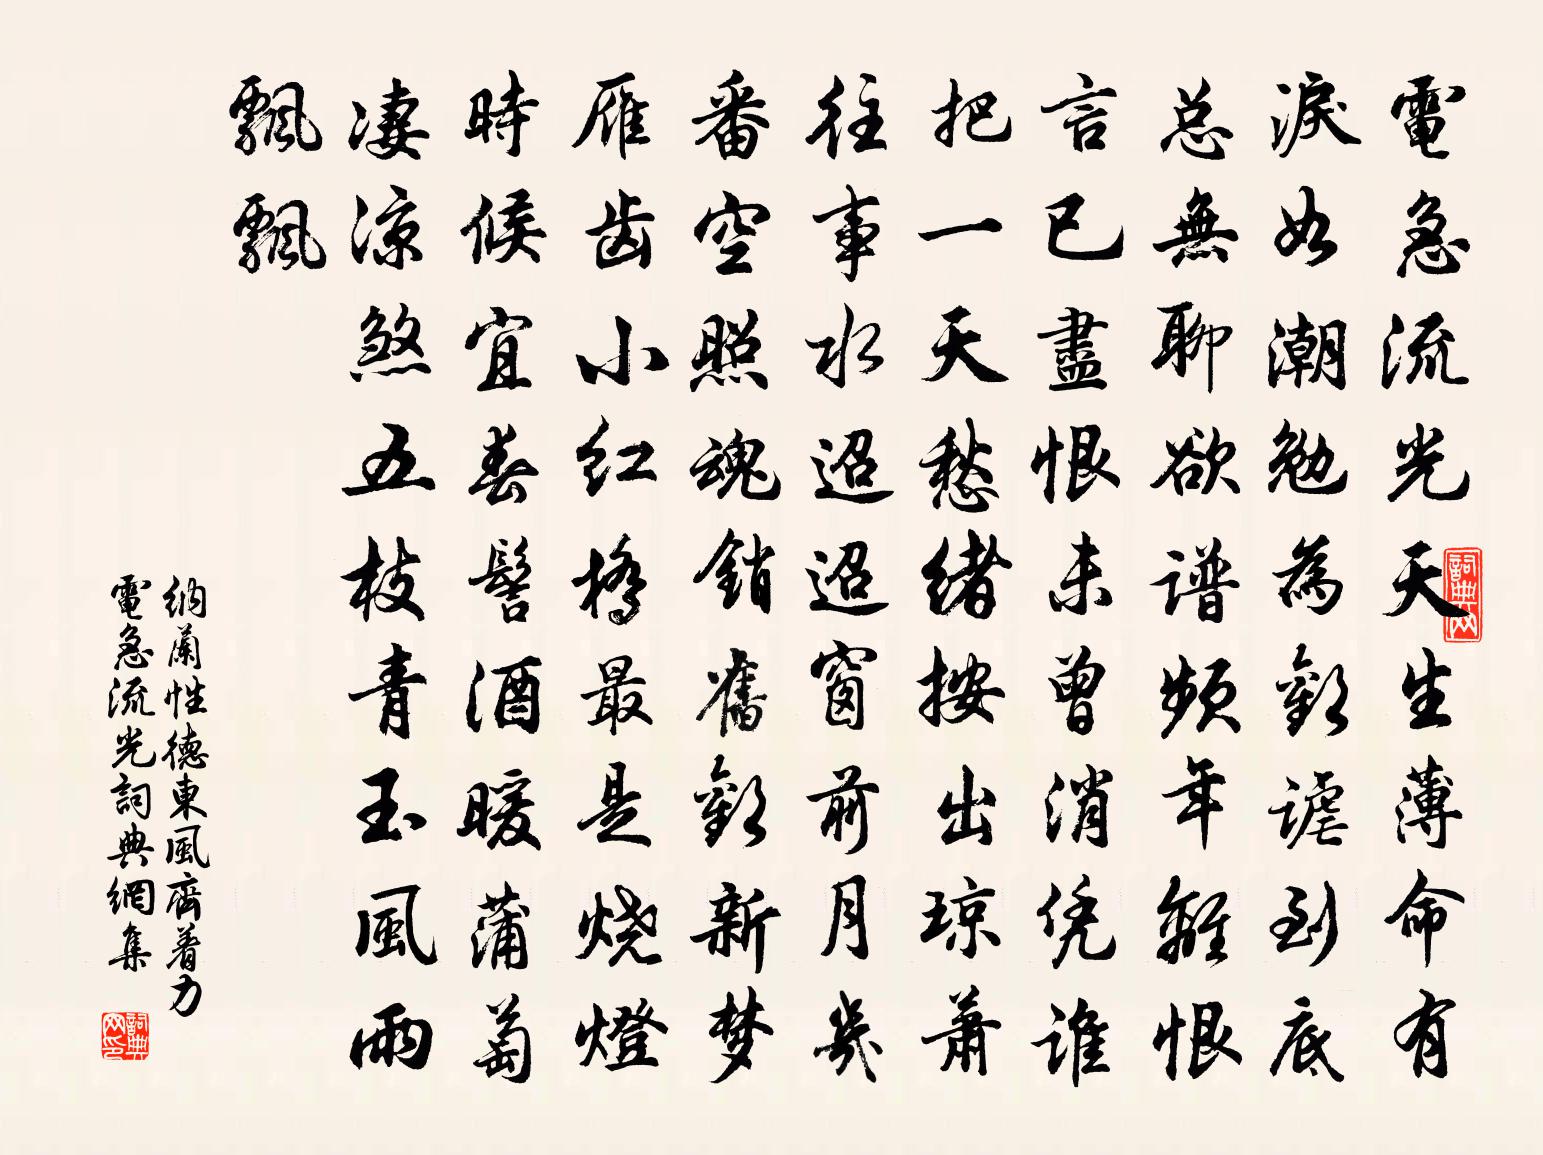 電急流光天生薄命有
淚如潮勉為歡謔到底
总無聊欲谱頻年離恨
言已盡恨未曾消凭谁
把一天愁緒按出琼萧
往事水迢迢窗前月几
番空照魂銷舊歡新梦
雁齿小红橋最是烧燈
時候宜春髻酒暖蒲萄
凄凉煞五枝青玉風雨
飄飄
納蘭性德東風齊着力
電急流光詞典網集
詞典网
詞典网印